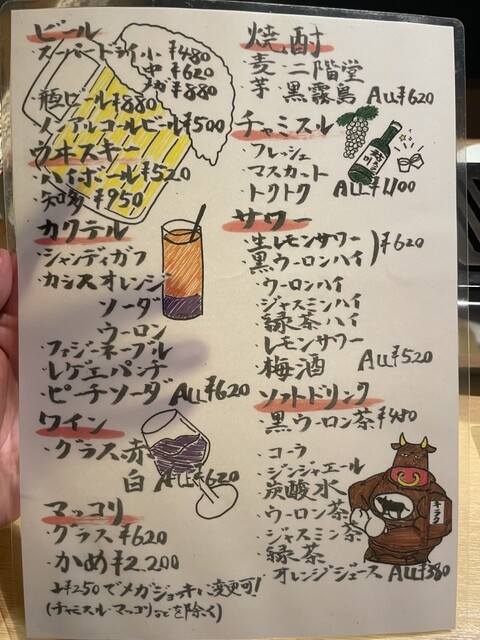 ビール
スーパードライ 小 ¥480
中 ¥620
メガ ¥880
瓶ビール ¥880
ノンアルコールビール ¥500
ウヰスキー
ハイボール ¥520
・知多 ¥950
カクテル
・シャンディガフ
・カシスオレンジ
ソーダ
ウーロン
・ファジーネーブル
・レゲエパンチ
・ピーチソーダ ALL¥620
ワイン
・グラス 赤
白 ALL¥620
マッコリ
・グラス ¥620
・かめ ¥2.200
+¥250でメガジョッキに変更可!
(チャミスル・マッコリなどを除く)
焼酎
・麦 二階堂
・芋 黒霧島 ALL¥620
チャミスル
・フレッシュ
・マスカット
・トクトク ALL¥1,100
サワー
・生レモンサワー
・黒ウーロンハイ ¥620
・ウーロンハイ
・ジャスミンハイ
・緑茶ハイ
・レモンサワー
・梅酒 ALL¥520
ソフトドリンク
・黒ウーロン茶 ¥480
・コーラ
・ジンジャエール
・炭酸水
・ウーロン茶
・ジャスミン茶
・緑茶
・オレンジジュース ALL¥380